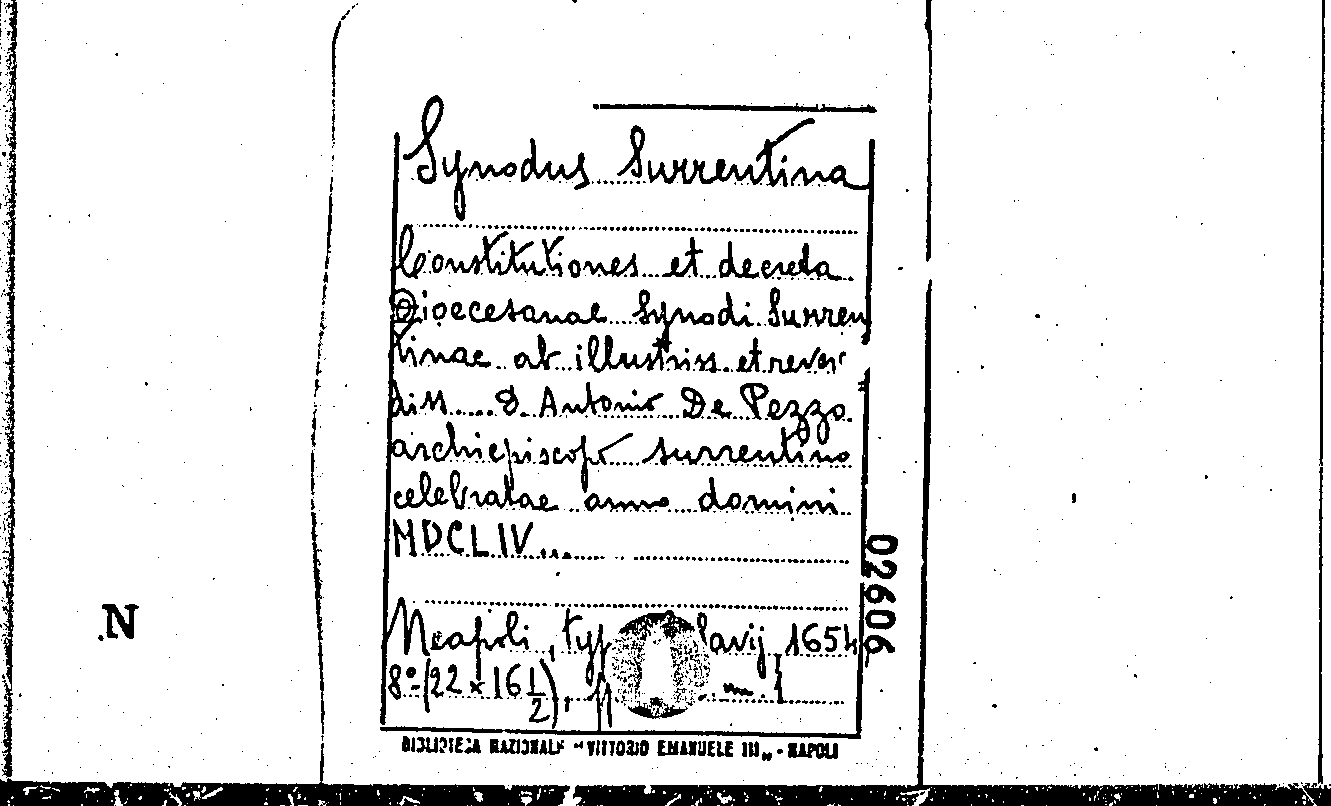 Synodus Surrentina
Constitutiones et decreta
Dioecesanae Synodi Surren
tinae ab illustriss. et rever
diss.... D. Antonio De Pezzo
archiepiscopo surrentino
celebratae anno domini
MDCLIV...
Neapoli, typ 1654
8º (22 x 16 1/2),
BIBLIOTECA NAZIONALE "VITTORIO EMANUELE III„ - NAPOLI
02606
N